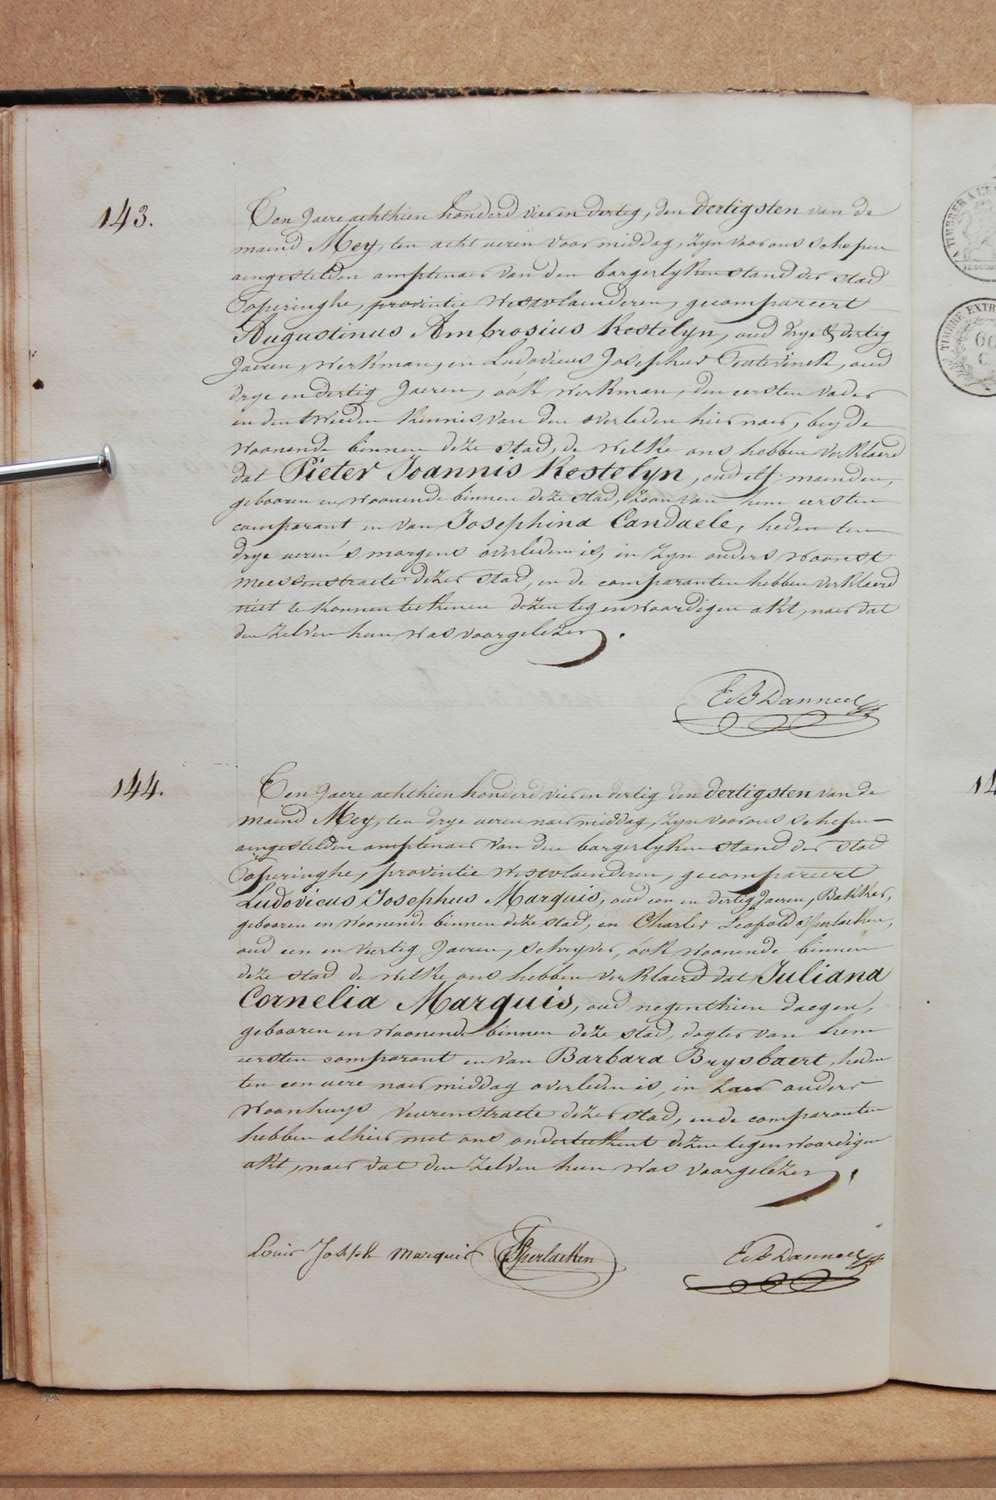 143.
Ten Jaere achthien honderd vier en dertig, den dertigsten van de
maend Mey, ten acht ueren voormiddag, zyn voor ons schepen
aengestelden amptenaer van den borgerlyken stand der stad
Poperinghe, provintie Westvlaenderen, gecompareert
Augustinus Ambrosius Kestelyn, oud drye & dertig
Jaeren, Werkman, en Ludovicus Josephus oud
drye en dertig Jaeren, ook Werkman, den eersten vader
en den tweeden kennis van den overleden hier naer, beyde
woonende binnen deze stad, de welke ons hebben verklaerd
dat Pieter Joannis Kestelyn, oud elf maenden,
gebooren en woonende binnen deze stad, zoon van hem eersten
comparant en van Josephina Candaele, heden ten
drye ueren 's morgens overleden is, in zyn ouders woonst
Meessenstraete dezer stad, en de comparanten hebben verklaerd
niet te konnen teekenen dezen tegenwoordigen akt, naer dat
den zelven hun was voorgelezen.
E de B Danneel
144.
Ten Jaere achthien honderd vier en dertig den dertigsten van de
maend Mey, ten drye ueren naermiddag, zyn voor ons schepen
aengestelden amptenaer van den borgerlyken stand der stad
Poperinghe, provintie Westvlaenderen, gecompareert
Ludovicus Josephus Marquis, oud een en dertig Jaeren, Bakker,
gebooren en woonende binnen deze stad, en Charles Leopold Sperlaeken,
oud een en viertig Jaeren, schryver, ook woonende binnen
deze stad de welke ons hebben verklaerd dat Juliana
Cornelia Marquis, oud negenthien daegen,
gebooren en woonende binnen deze stad, dogter van hem
eersten comparant en van Barbara Brysbaert, heden
ten een uere naermiddag overleden is, in haer ouders
woonhuys Veurenstraete dezer stad, en de comparanten
hebben alhier met ons onderteekent dezen tegenwoordigen
akt, naer dat den zelven hun was voorgelezen.
Louis Joseph Marquis Sperlaeken Danneel
TIMBRE EXTR
14